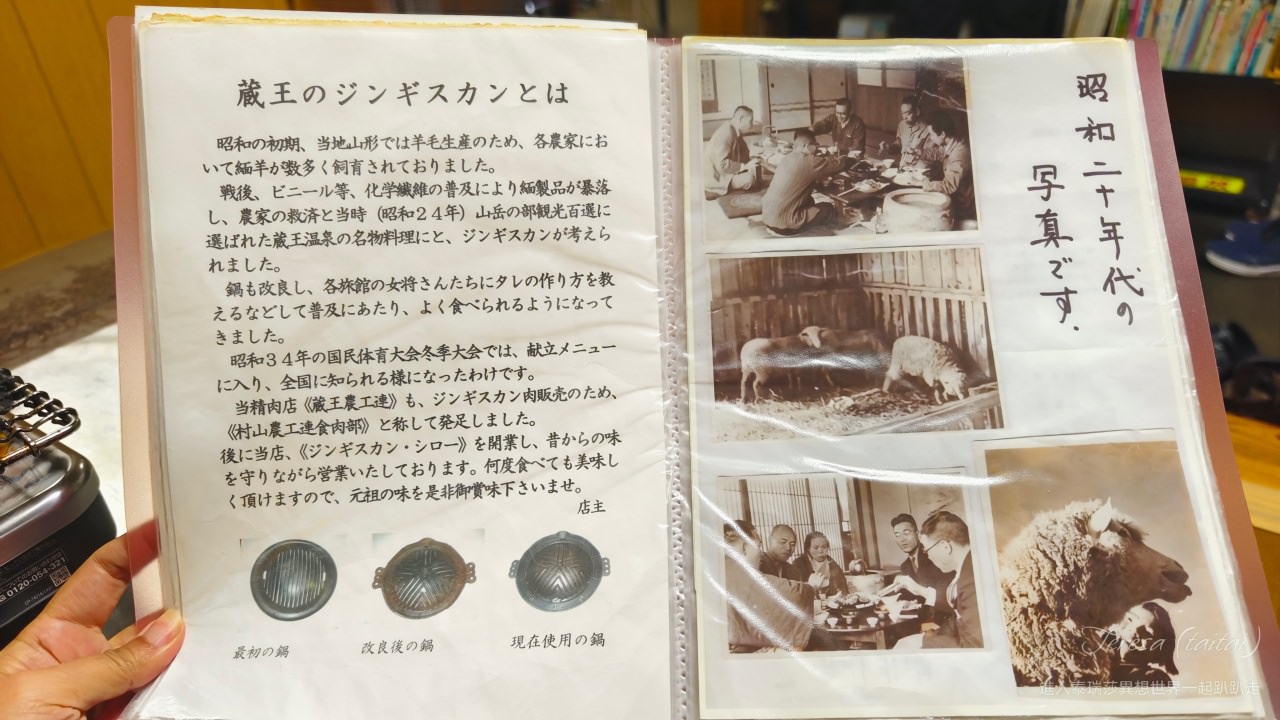 蔵王のジンギスカンとは
昭和の初期、当地山形では羊毛生産のため、各農家にお
いて緬羊が数多く飼育されておりました。
戦後、ビニール等、化学繊維の普及により緬製品が暴落
し、農家の救済と当時（昭和２４年）山岳の部観光百選に
選ばれた蔵王温泉の名物料理にと、ジンギスカンが考えら
れました。
鍋も改良し、各旅館の女将さんたちにタレの作り方を教
えるなどして普及にあたり、よく食べられるようになって
きました。
昭和３４年の国民体育大会冬季大会では、献立メニュー
に入り、全国に知られる様になったわけです。
当精肉店《蔵王農工連》も、ジンギスカン肉販売のため、
《村山農工連食肉部》と称して発足しました。
後に当店、《ジンギスカン・シロー》を開業し、昔からの味
を守りながら営業いたしております。何度食べても美味し
く頂けますので、元祖の味を是非御賞味下さいませ。
店主
最初の鍋
改良後の鍋
現在使用の鍋
昭和二十年代の
写真です.
0120-054-321
Teresa (taitai)
進入泰瑞莎異想世界一起趴趴走